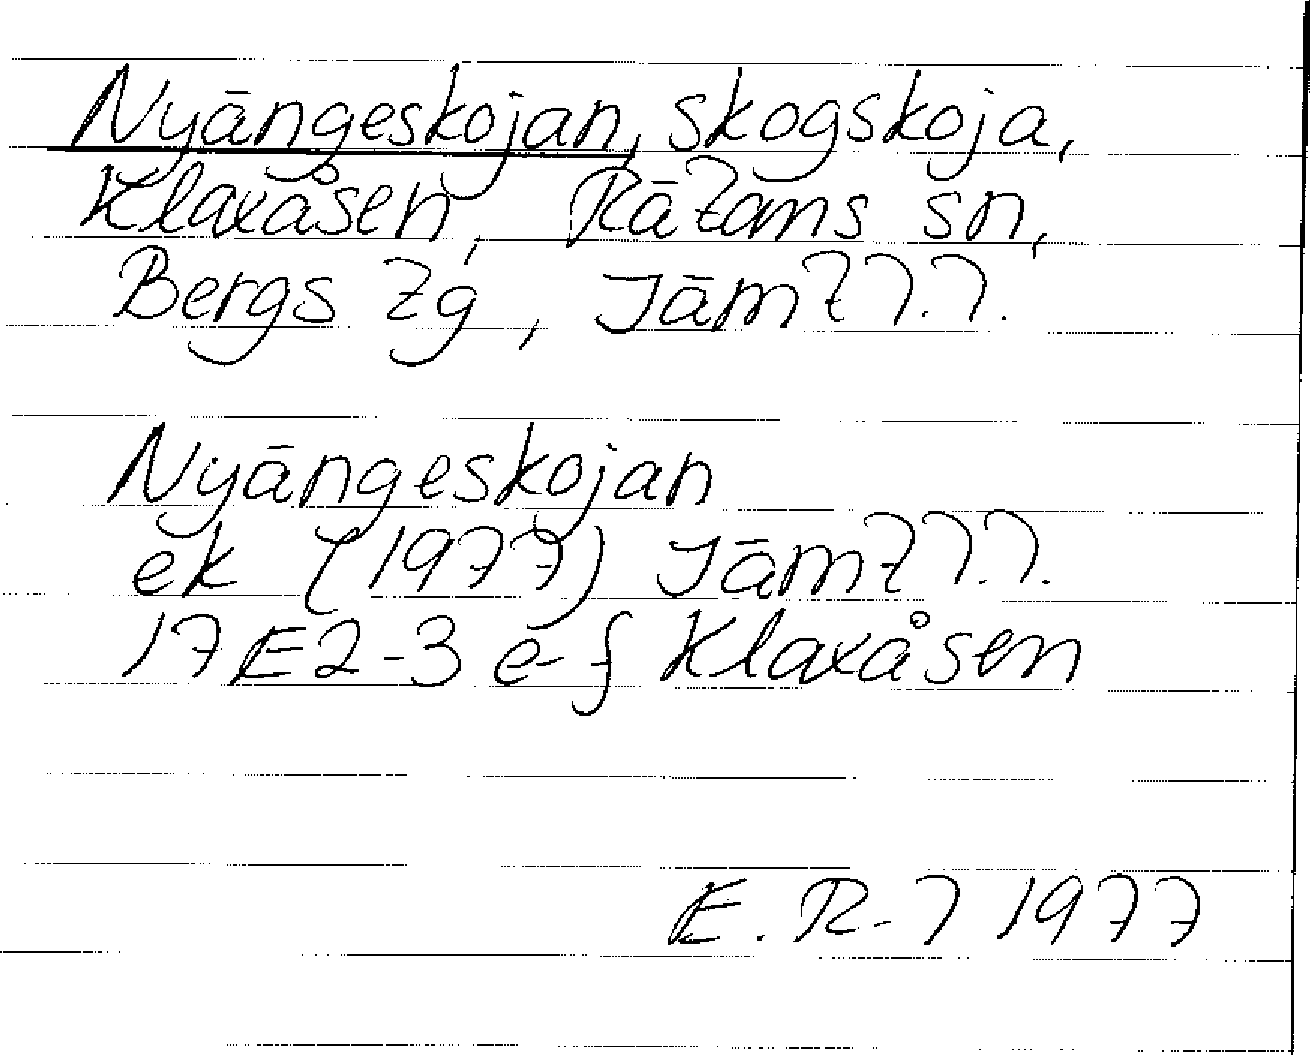 Nyängeskojan, skogskoja,
Klaxåsen, Rätans sn,
Bergs tg, Jämtl.l.
Nyängeskojan
ek (1977) Jämtl.l.
17E2-3 e-f Klaxåsen
E. R-l 1977